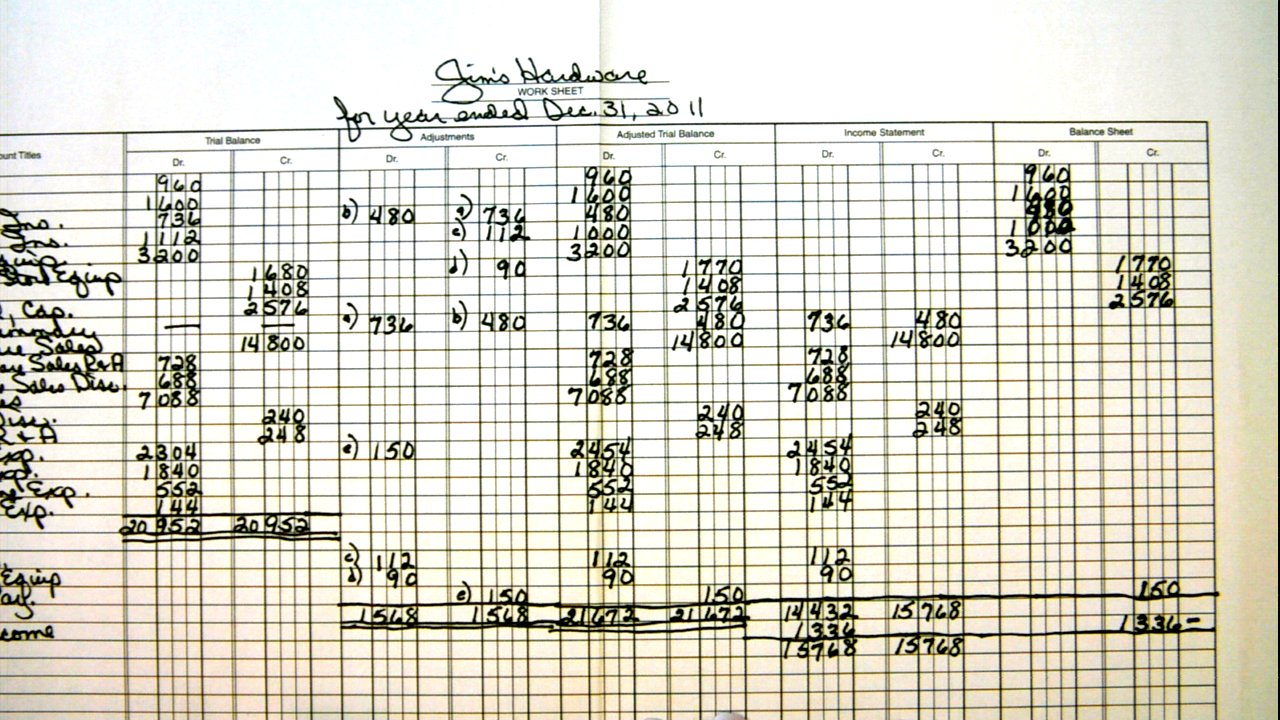 Jim's Hardware
WORK SHEET
for year ended Dec. 31, 2011
Trial Balance Adjustments Adjusted Trial Balance Income Statement Balance Sheet
unt Titles Dr. Cr. Dr. Cr. Dr. Cr. Dr. Cr. Dr. Cr.
960 960 960
1600 1600 1600
Ins. 736 b) 480 a) 736 480 480
Ins. 1112 c) 112 1000 1000
3200 3200 3200
Store Equip 1680 d) 90 1770 1770
1408 1408 1408
Cap. 2576 2576 2576
— — a) 736 b) 480 736 480 736 480
Sales 14800 14800 14800
Sales R+A 728 728 728
Sales Disc. 688 688 688
es 7088 7088 7088
Disc. 240 240 240
R + A 248 248 248
Exp. 2304 e) 150 2454 2454
xp. 1840 1840 1840
Exp. 552 552 552
Exp. 144 144 144
20952 20952
c) 112 112 112
Equip d) 90 90 90
ay. e) 150 150 150
1568 1568 21672 21672 14432 15768
come 1336 1336-
15768 15768